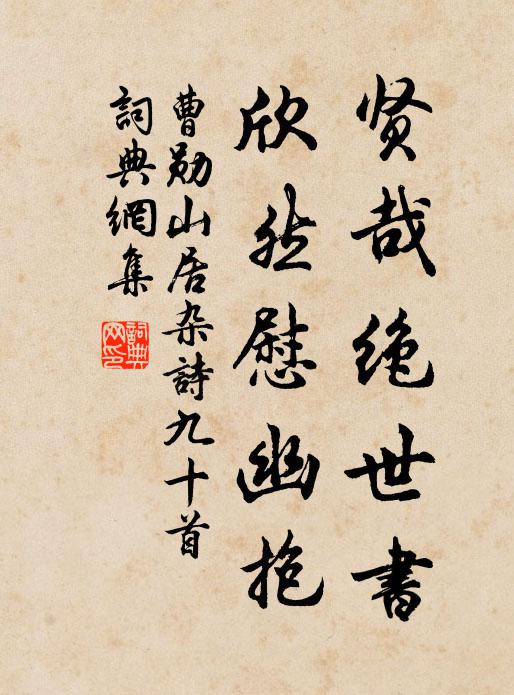 贤哉绝世書
欣然慰幽抱
曹勛山居杂詩九十首
詞典網集
詞典網印